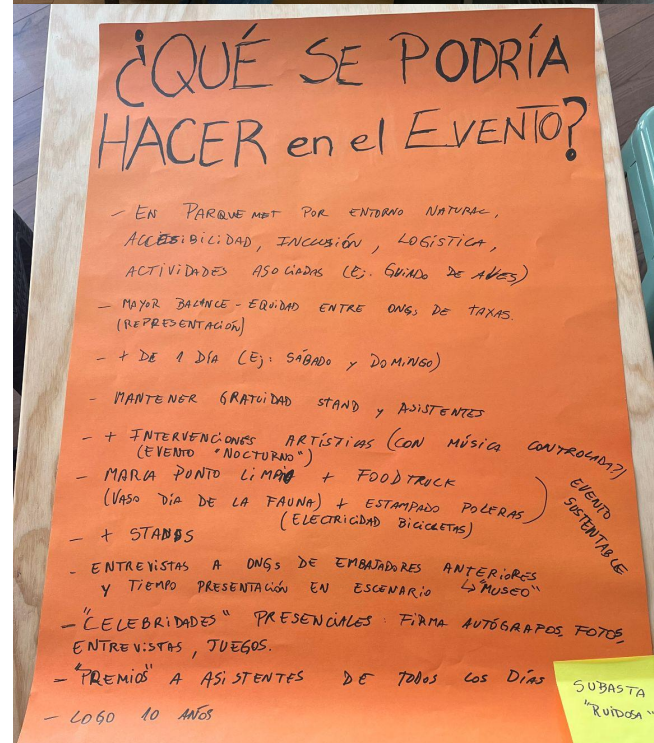 ¿QUÉ SE PODRÍA
HACER en el EVENTO?
- EN PARQUEMET POR ENTORNO NATURAL,
ACCESIBILIDAD, INCLUSIÓN, LOGÍSTICA,
ACTIVIDADES ASOCIADAS (Ej: GUIADO DE AVES)
- MAYOR BALANCE - EQUIDAD ENTRE ONGs DE TAXAS.
(REPRESENTACIÓN)
- + DE 1 DÍA (Ej: SÁBADO y DOMINGO)
- MANTENER GRATUIDAD STAND y ASISTENTES
- + INTERVENCIONES ARTÍSTICAS (CON MÚSICA CONTROLADA?)
(EVENTO "NOCTURNO")
- MARCA PUNTO LIMPIO + FOODTRUCK
(VASO DÍA DE LA FAUNA) + ESTAMPADO POLERAS
(ELECTRICIDAD BICICLETAS)
EVENTO
SUSTENTABLE
- + STANDS
- ENTREVISTAS A ONGs DE EMBAJADORES ANTERIORES
Y TIEMPO PRESENTACIÓN EN ESCENARIO ↳ "MUSEO"
- "CELEBRIDADES" PRESENCIALES: FIRMA AUTÓGRAFOS, FOTOS,
ENTREVISTAS, JUEGOS.
- "PREMIOS" A ASISTENTES DE TODOS LOS DÍAS
- LOGO 10 AÑOS
SUBASTA
"RUIDOSA"